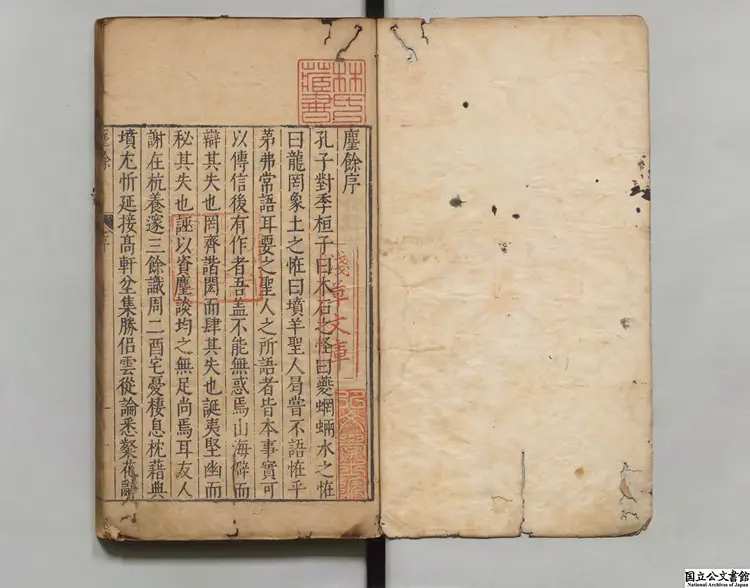 麈餘序
孔子對季桓子曰木石之怪曰夔蝄蜽水之恠
曰龍罔象土之恠曰墳羊聖人曷嘗不語恠乎
苐弗常語耳要之聖人之所語者皆本事實可
以傳信後有作者吾盖不能無惑焉山海僻而
辯其失也罔齊諧閎而肆其失也誕夷堅幽而
秘其失也誣以資麈談均之無足尚焉耳友人
謝在杭養邃三餘識周二酉宅憂棲息枕藉典
墳尤忻延接髙軒坌集勝侣雲從論悉
林氏
藏書
淺草文庫
餘
序
国立公文書館
National Archives of Japan